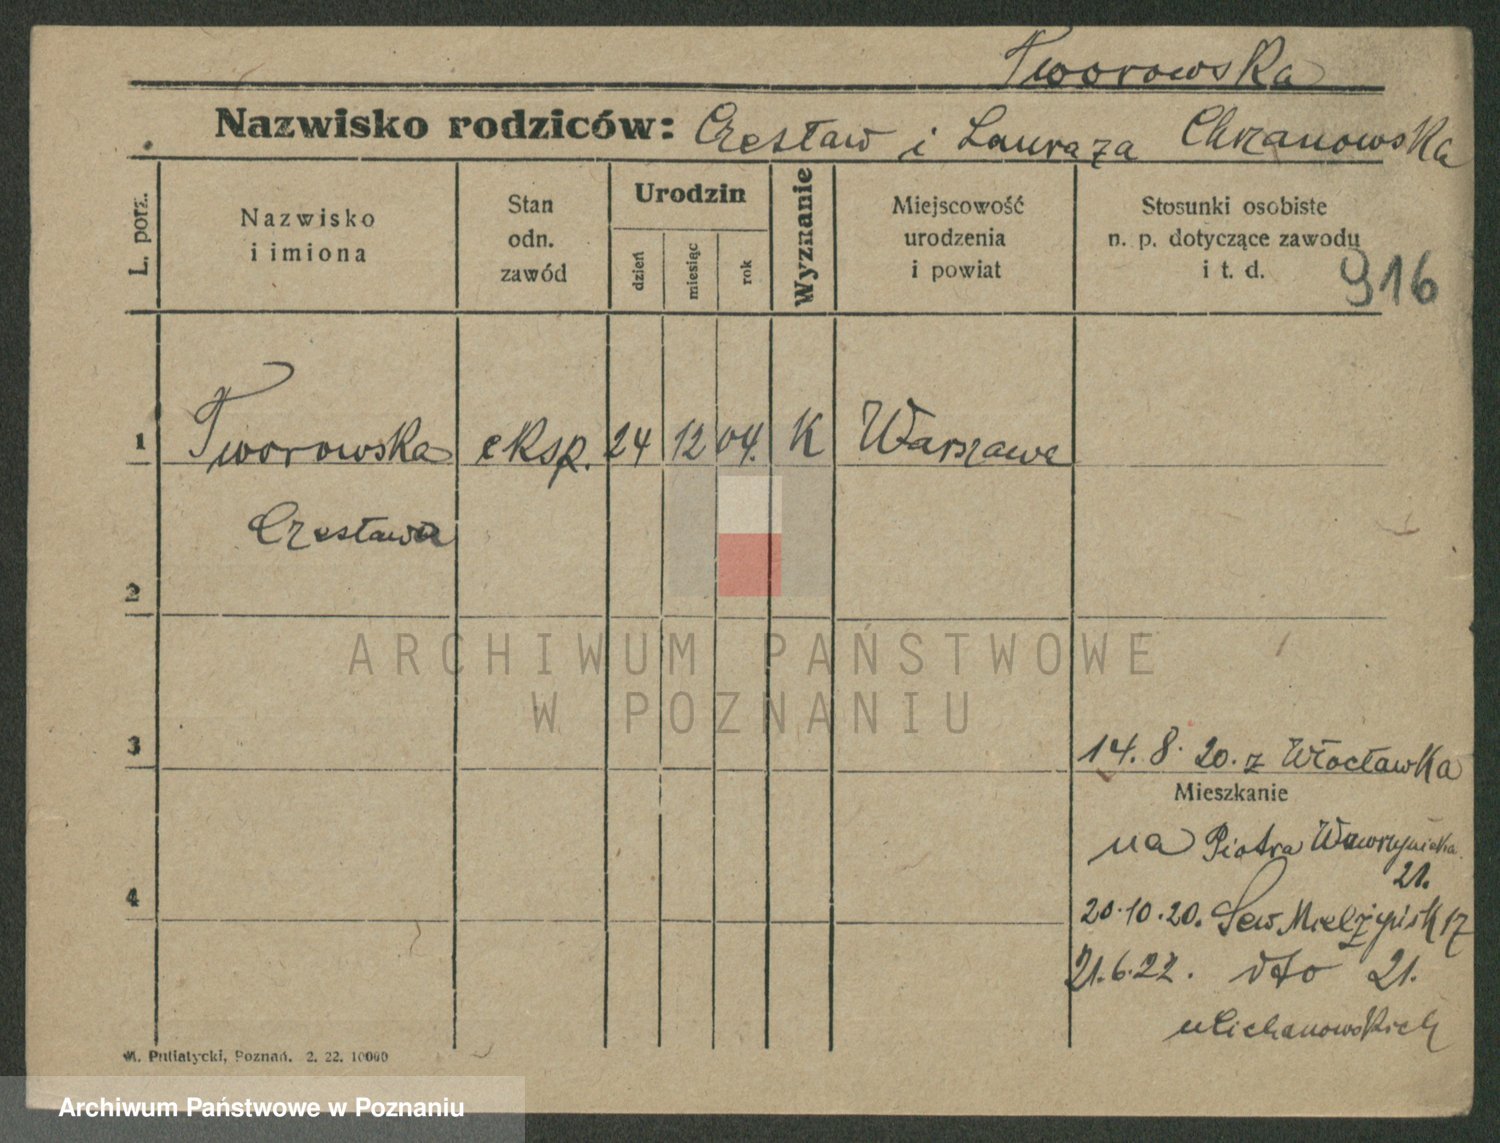 Tworowska
Nazwisko rodziców: Czesław i Laura za Chrzanowska
L. porz.
Nazwisko
i imiona
Stan
odn.
zawód
Urodzin
dzień
miesiąc
rok
Wyznanie
Miejscowość
urodzenia
i powiat
Stosunki osobiste
n. p. dotyczące zawodu
i t. d.
916
1 Tworowska eksp. 24 12 04. K Warszawa
Czesława
2
ARCHIWUM PAŃSTWOWE
W POZNANIU
3
14. 8. 20. z Włocławka
Mieszkanie
na Piotra Wawrzyniaka
21.
4
20.10.20. Sew. Mielżyńsk 17
21.6.22. dto 21.
u Cichanowskich
M. Putiatycki, Poznań. 2. 22. 10000
Archiwum Państwowe w Poznaniu